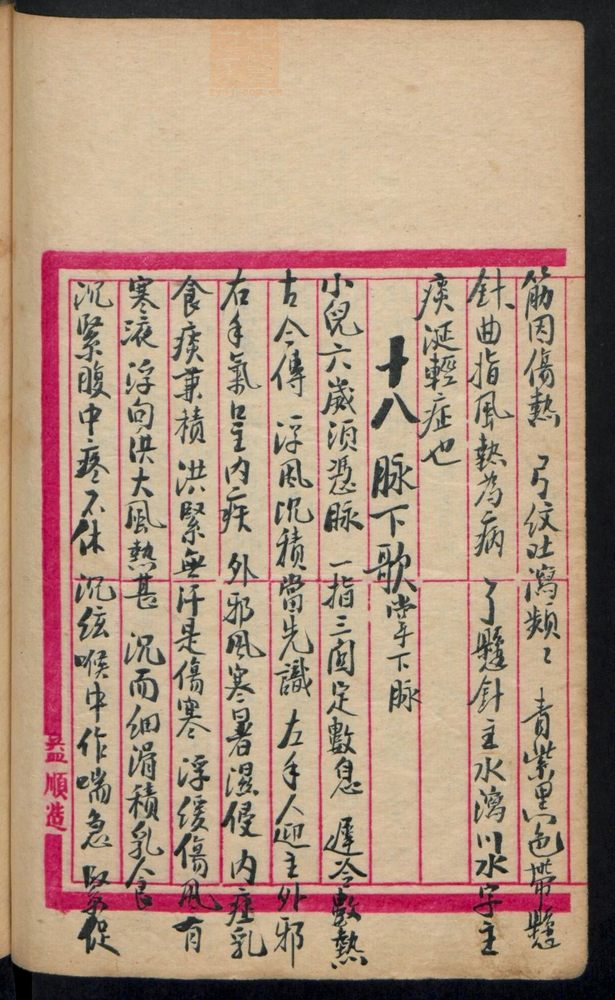 筋因傷熱 弓紋吐瀉頻〻 青紫黑色帶懸
針 曲指風熱為病 了懸針主水瀉川水字主
痰涎輕症也
十八 脉下歌 掌下脉
小兒六歲須憑脉 一指三関定數息 遲冷數熱
古今傳 浮風沉積當先識 左手人迎主外邪
右手氣口主內疾 外邪風寒暑濕侵 內疰乳
食痰兼積 洪緊無汗是傷寒 浮緩傷風有
寒液 浮向洪大風熱甚 沉而細滑積乳食
沉緊腹中疼不休 沉絃喉中作喘急 緊促
益順造